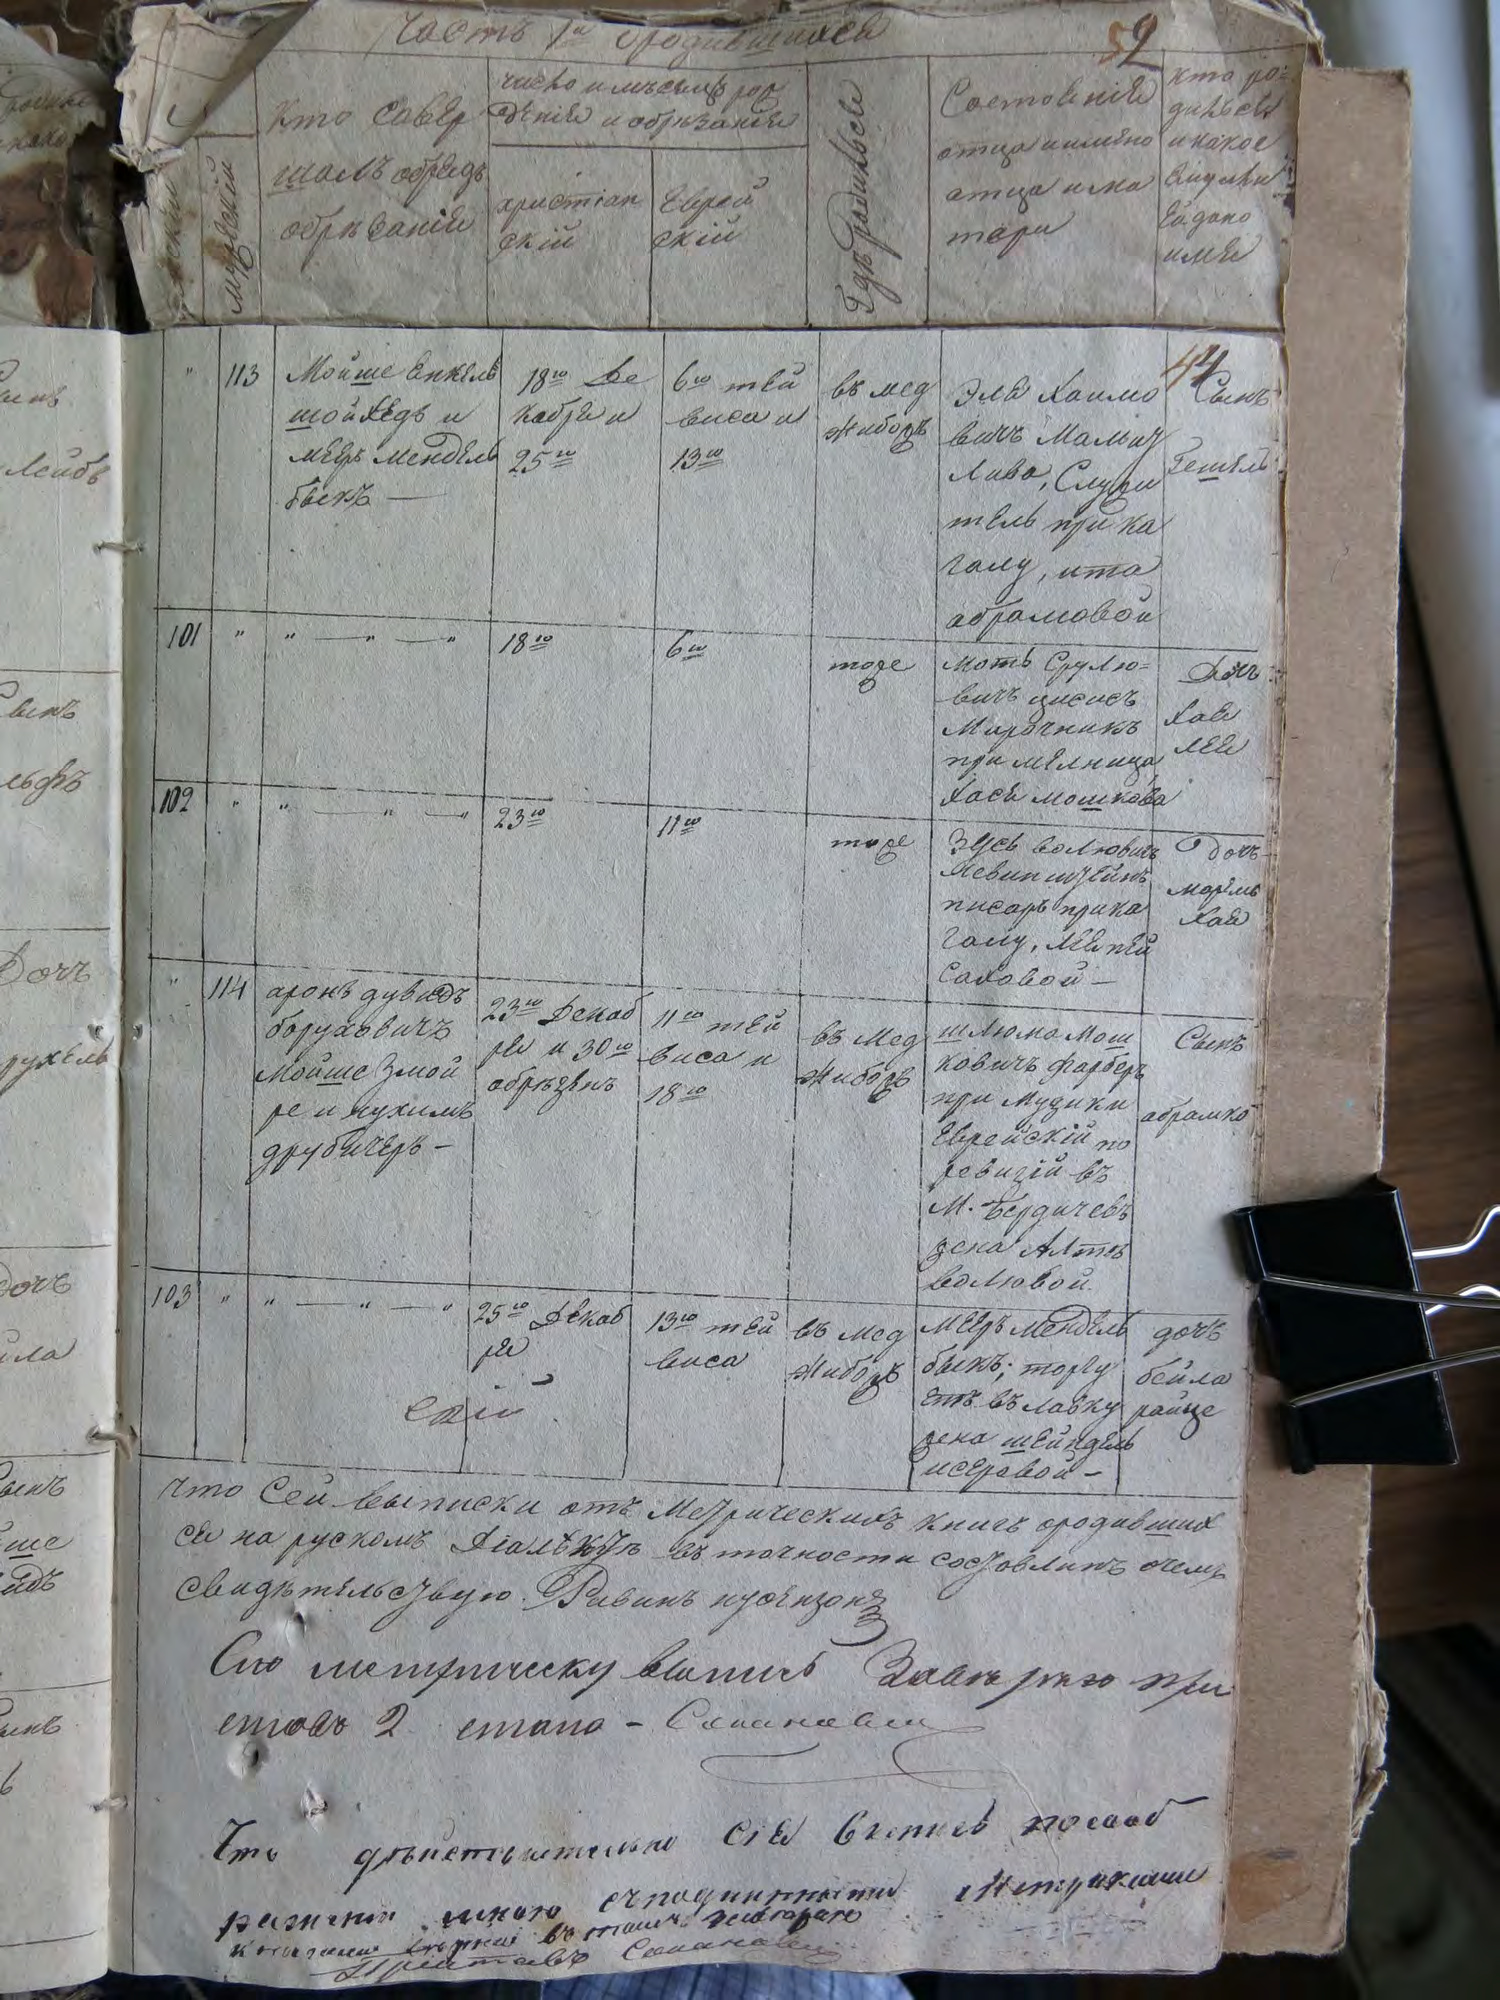 Часть 1я ородившихся
52
женский
мужеский
кто совер
шалъ обрядъ
обрѣзаніе
число и мѣсяцъ рож
деніе и обрѣзаніе
христіан
скій
Еврей
скій
Гдѣ родился
Состоеніе
отца и имено
отца и ма
тери
кто ро=
дился
и какое
ему или
ей дано
имя
44
" 113
Мойше Енкель
шойхедъ и
мееръ мендель
быкъ —
18го Де
кабря и
25го
6го тей
виса и
13го
въ мед
жибожъ
Эля Хаимо
вичъ
Лива, Служи
тель при ка
галу, ита
абрамовой
Сынъ
Гешель
101 " " — " — "
18го
6го
тоже
моть Срулю=
вичъ цисисъ
Мирочникъ
при мелница
Хася мошкова
Дочь
Хая
лея
102 " " — " — "
23го
11го
тоже
Зусь волювичъ
Левинштейнъ
писарь при ка
галу, лея пей
саховой —
дочь
марямь
Хая
" 114
аронъ дувидъ
боруховичъ
мойше Змой
ре и нухимъ
друбичеръ —
23го Декаб
ря и 30го
обрѣзенъ
11го тей
виса и
18го
въ Мед
жибожъ
шлюма мош
ковичъ фарберъ
при музики
Еврейскій по
ревизій въ
М. Бердичевъ
жена Алта
волювой
Сынъ
абрамко
103 " " — " — "
25го Декаб
ря
13го тей
виса
въ мед
жибожъ
мееръ мендель
быкъ; торгу
етъ въ лавку
жена шейндель
исеровой —
дочь
бейла
райце
скій
что Сей выписки отъ Метрическихъ книгъ ородивших
ся на рускомъ въ точности составлинъ очемъ
свидѣтельствую. Равинъ
Сію метрическу выпись Завѣряю при
ставъ 2 стана —
Что дѣйствительно сія выпись
мною съ подлинными Метриками
въ томъ
Приставъ